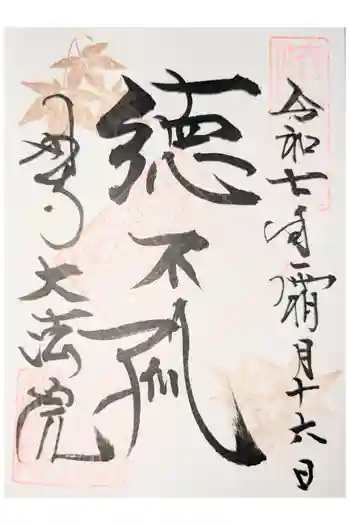 令和七年霜月十六日
徳不孤
大法院